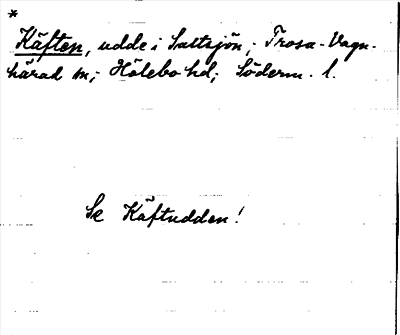 *
Käften, udde i Saltsjön; Trosa-Vagn-
härad sn; Hölebo hd; Söderm. l.
Se Käftudden!